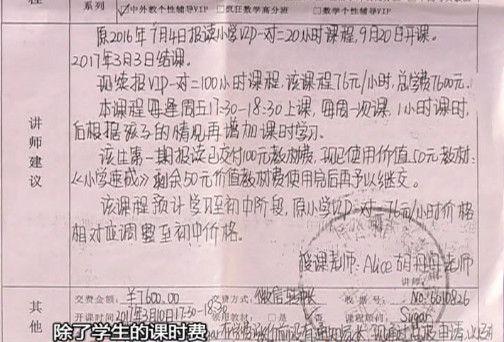 程
系列
☑中外教个性辅导VIP □疯狂数学高分班 □数学个性辅导VIP
原2016年7月4日报读小学VIP一对二20小时课程,9月20日开课。
2017年3月3日结课。
现续报VIP一对二100小时课程,该课程76元/小时,总学费7600元。
本课程每逢周五17:30-18:30上课,每周一次课,1小时课时,
后根据孩子的情况再增加课时学习。
该生第一期报读已交付100元教材费,现已使用价值50元教材:
《小学速成》剩余50元价值教材费使用完后再予以继交。
该课程预计学习至初中阶段,原小学VIP一对二76元/小时价格
相对应调整至初中价格。
讲师建议
授课老师:Alice
老师
讲师
交费金额:¥7600.00
交费方式:微信转帐
收据号:No:6610826
开课时间:2017年3月10日17:30-18:30
领用教材:
是
否
课程顾问:Sugar
其他
除了学生的课时费